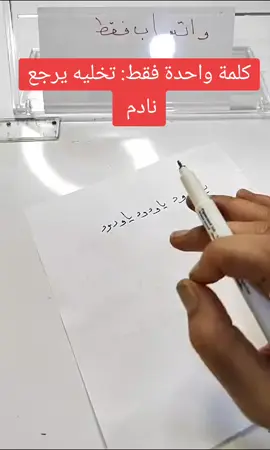 واتس اب فقط
كلمة واحدة فقط: تخليه يرجع
نادم
ياودود ياودود